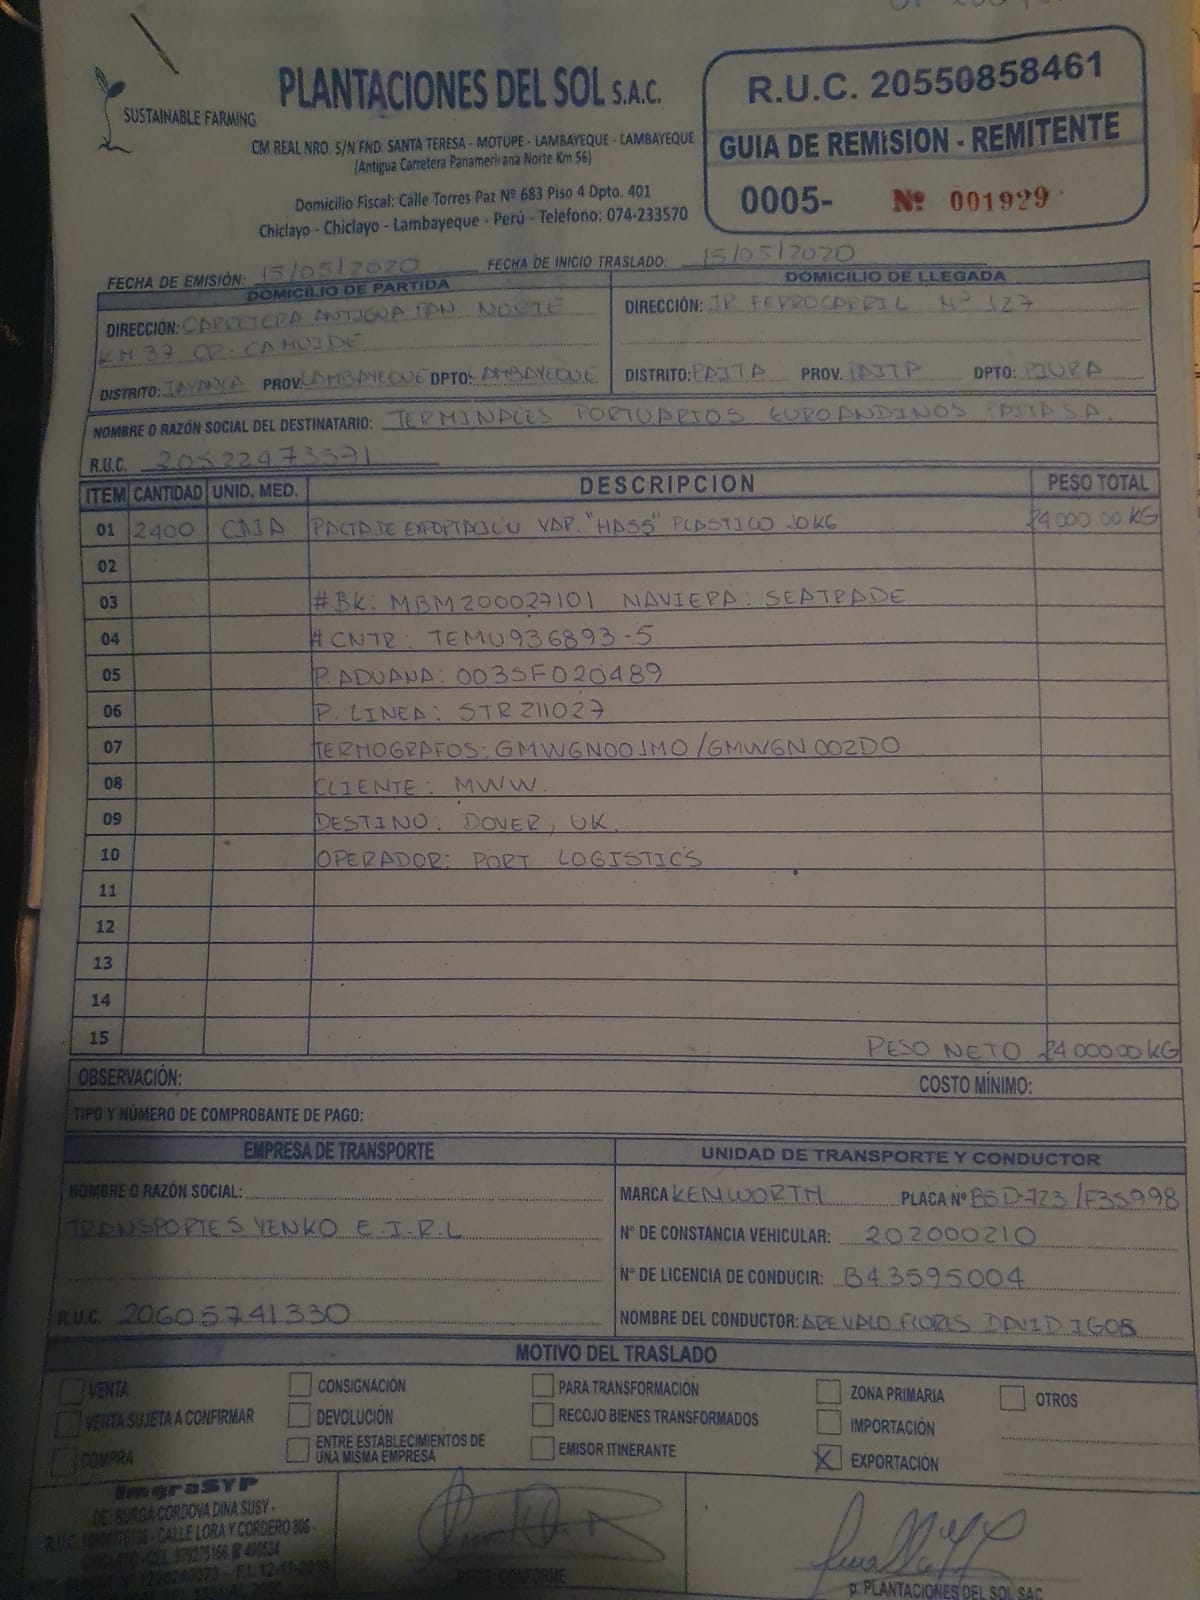 SUSTAINABLE FARMING
PLANTACIONES DEL SOL S.A.C.
CM REAL NRO. S/N FND. SANTA TERESA - MOTUPE - LAMBAYEQUE - LAMBAYEQUE
(Antigua Carretera Panamericana Norte Km 56)
Domicilio Fiscal: Calle Torres Paz Nº 683 Piso 4 Dpto. 401
Chiclayo - Chiclayo - Lambayeque - Perú - Telefono: 074-233570
R.U.C. 20550858461
GUIA DE REMISION - REMITENTE
0005- Nº 001929
FECHA DE EMISIÓN: 15/05/2020 FECHA DE INICIO TRASLADO: 15/05/2020
DOMICILIO DE PARTIDA
DIRECCIÓN: CARRETERA ANTIGUA PAN NORTE
KM 37 CP. CAHUIDE
DISTRITO: JAYANCA PROV. LAMBAYEQUE DPTO: LAMBAYEQUE
DOMICILIO DE LLEGADA
DIRECCIÓN: JR FERROCARRIL Nº 127
DISTRITO: PAITA PROV. PAITA DPTO: PIURA
NOMBRE O RAZÓN SOCIAL DEL DESTINATARIO: TERMINALES PORTUARIOS EUROANDINOS PAITA S.A.
R.U.C. 20522473571
ITEM CANTIDAD UNID. MED. DESCRIPCION PESO TOTAL
01 2400 CAJA PALTA DE EXPORTACIÓN VAR. "HASS" PLASTICO 10KG 24000.00 KG
02
03 #BK: MBM200027101 NAVIERA: SEATRADE
04 # CNTR: TEMU936893-5
05 P. ADUANA: 003SF020489
06 P. LINEA: STR211027
07 TERMOGRAFOS: GMWGN001M0/GMWGN002D0
08 CLIENTE: MWW.
09 DESTINO: DOVER, UK.
10 OPERADOR: PORT LOGISTICS
11
12
13
14
15 PESO NETO 24000.00 KG
OBSERVACIÓN: COSTO MÍNIMO:
TIPO Y NÚMERO DE COMPROBANTE DE PAGO:
EMPRESA DE TRANSPORTE
NOMBRE O RAZÓN SOCIAL:
TRANSPORTES YENKO E.I.R.L
R.U.C. 20605741330
UNIDAD DE TRANSPORTE Y CONDUCTOR
MARCA KENWORTH PLACA Nº B5D-723/F3S998
N° DE CONSTANCIA VEHICULAR: 202000210
N° DE LICENCIA DE CONDUCIR: B43595004
NOMBRE DEL CONDUCTOR: AREVALO FLORES DAVID IGOR
MOTIVO DEL TRASLADO
VENTA CONSIGNACIÓN PARA TRANSFORMACIÓN ZONA PRIMARIA OTROS
VENTA SUJETA A CONFIRMAR DEVOLUCIÓN RECOJO BIENES TRANSFORMADOS IMPORTACIÓN
COMPRA ENTRE ESTABLECIMIENTOS DE UNA MISMA EMPRESA EMISOR ITINERANTE X EXPORTACIÓN
ImgraSYP
DE: BURGA CORDOVA DINA SUSY -
CALLE LORA Y CORDERO 806 -
CHICLAYO - CEL.
CONFORME
P. PLANTACIONES DEL SOL SAC